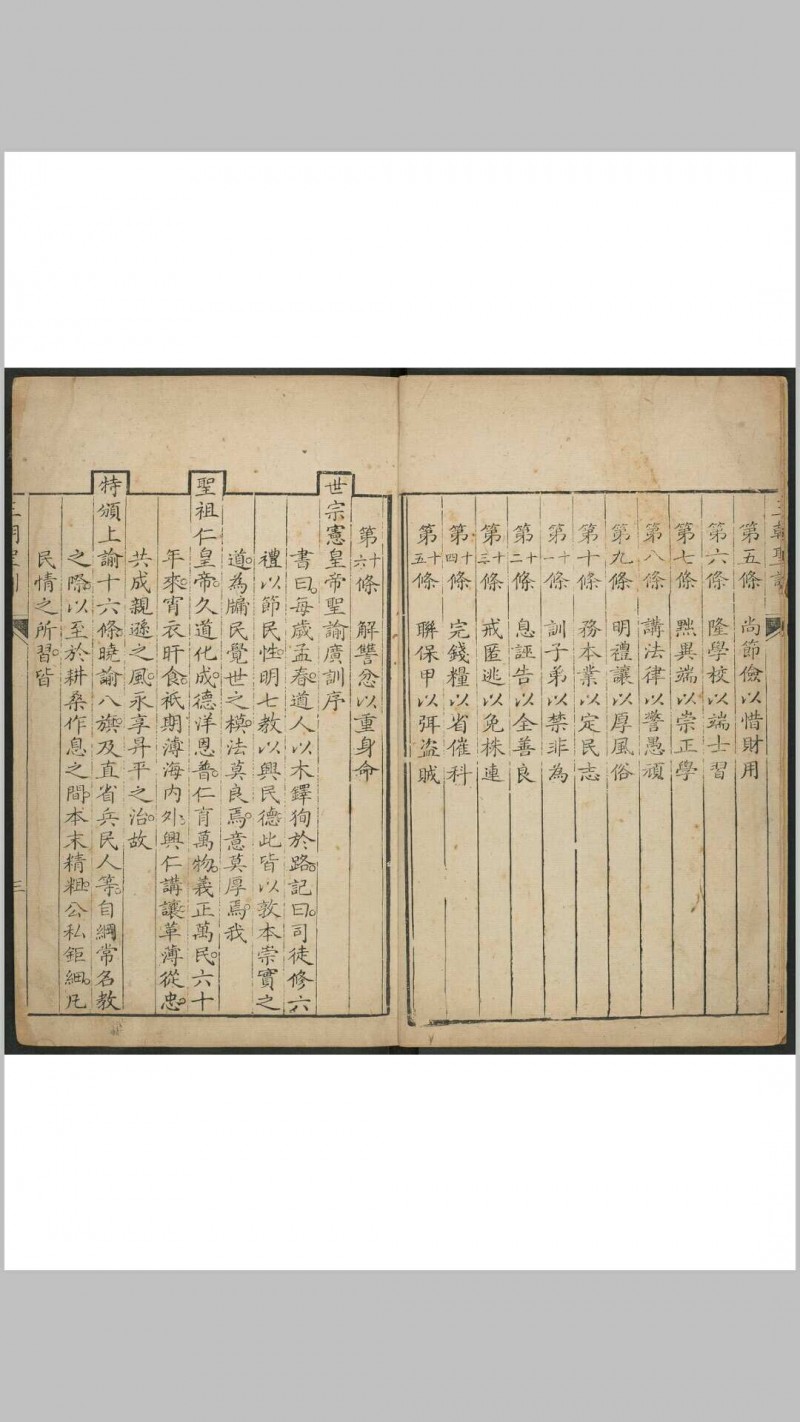 第五條 尚節儉以惜財用
第六條 隆學校以端士習
第七條 黜異端以崇正學
第八條 講法律以警愚頑
第九條 明禮讓以厚風俗
第十條 務本業以定民志
第十一條 訓子弟以禁非為
第十二條 息誣告以全善良
第十三條 戒匿逃以免株連
第十四條 完錢糧以省催科
第十五條 聯保甲以弭盜賊
第十六條 解讐忿以重身命
世宗憲皇帝聖諭廣訓序
書曰。每歲孟春。遒人以木鐸徇於路。記曰。司徒修六
禮以節民性。明七教以興民德。此皆以敦本崇實之
道。為牖民覺世之模。法莫良焉。意莫厚焉。我
聖祖仁皇帝。久道化成。德洋恩普。仁育萬物。義正萬民。六十
年來。宵衣旰食。祇期薄海內外。興仁講讓。革薄從忠。
共成親遜之風。永享昇平之治。故
特頒上諭十六條。曉諭八旗。及直省兵民人等。自綱常名教
之際。以至於耕桑作息之間。本末精粗。公私鉅細。凡
民情之所習。皆
三